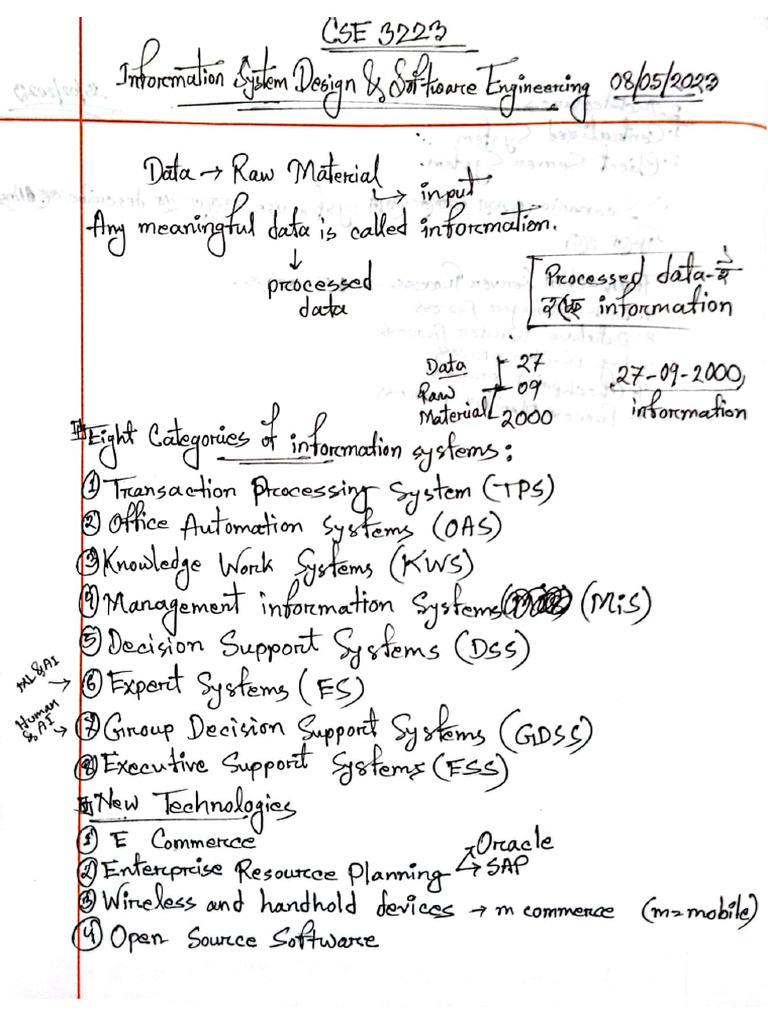 CSE 3223
Information System Design & Software Engineering 08/05/2023
Data → Raw Material
↳ input
Any meaningful data is called information.
↓
processed
data
Processed data-ই
হচ্ছে information
Data 27
Raw 09
Material 2000
27-09-2000,
information
Eight Categories of information systems:
① Transaction Processing System (TPS)
② Office Automation Systems (OAS)
③ Knowledge Work Systems (KWS)
④ Management information Systems (MiS)
⑤ Decision Support Systems (DSS)
ML & AI → ⑥ Expert Systems (ES)
Human & AI → ⑦ Group Decision Support Systems (GDSS)
⑧ Executive Support Systems (ESS)
New Technologies
① E Commerce
② Enterprise Resource Planning → Oracle
→ SAP
③ Wireless and handhold devices → m commerce (m=mobile)
④ Open Source Software